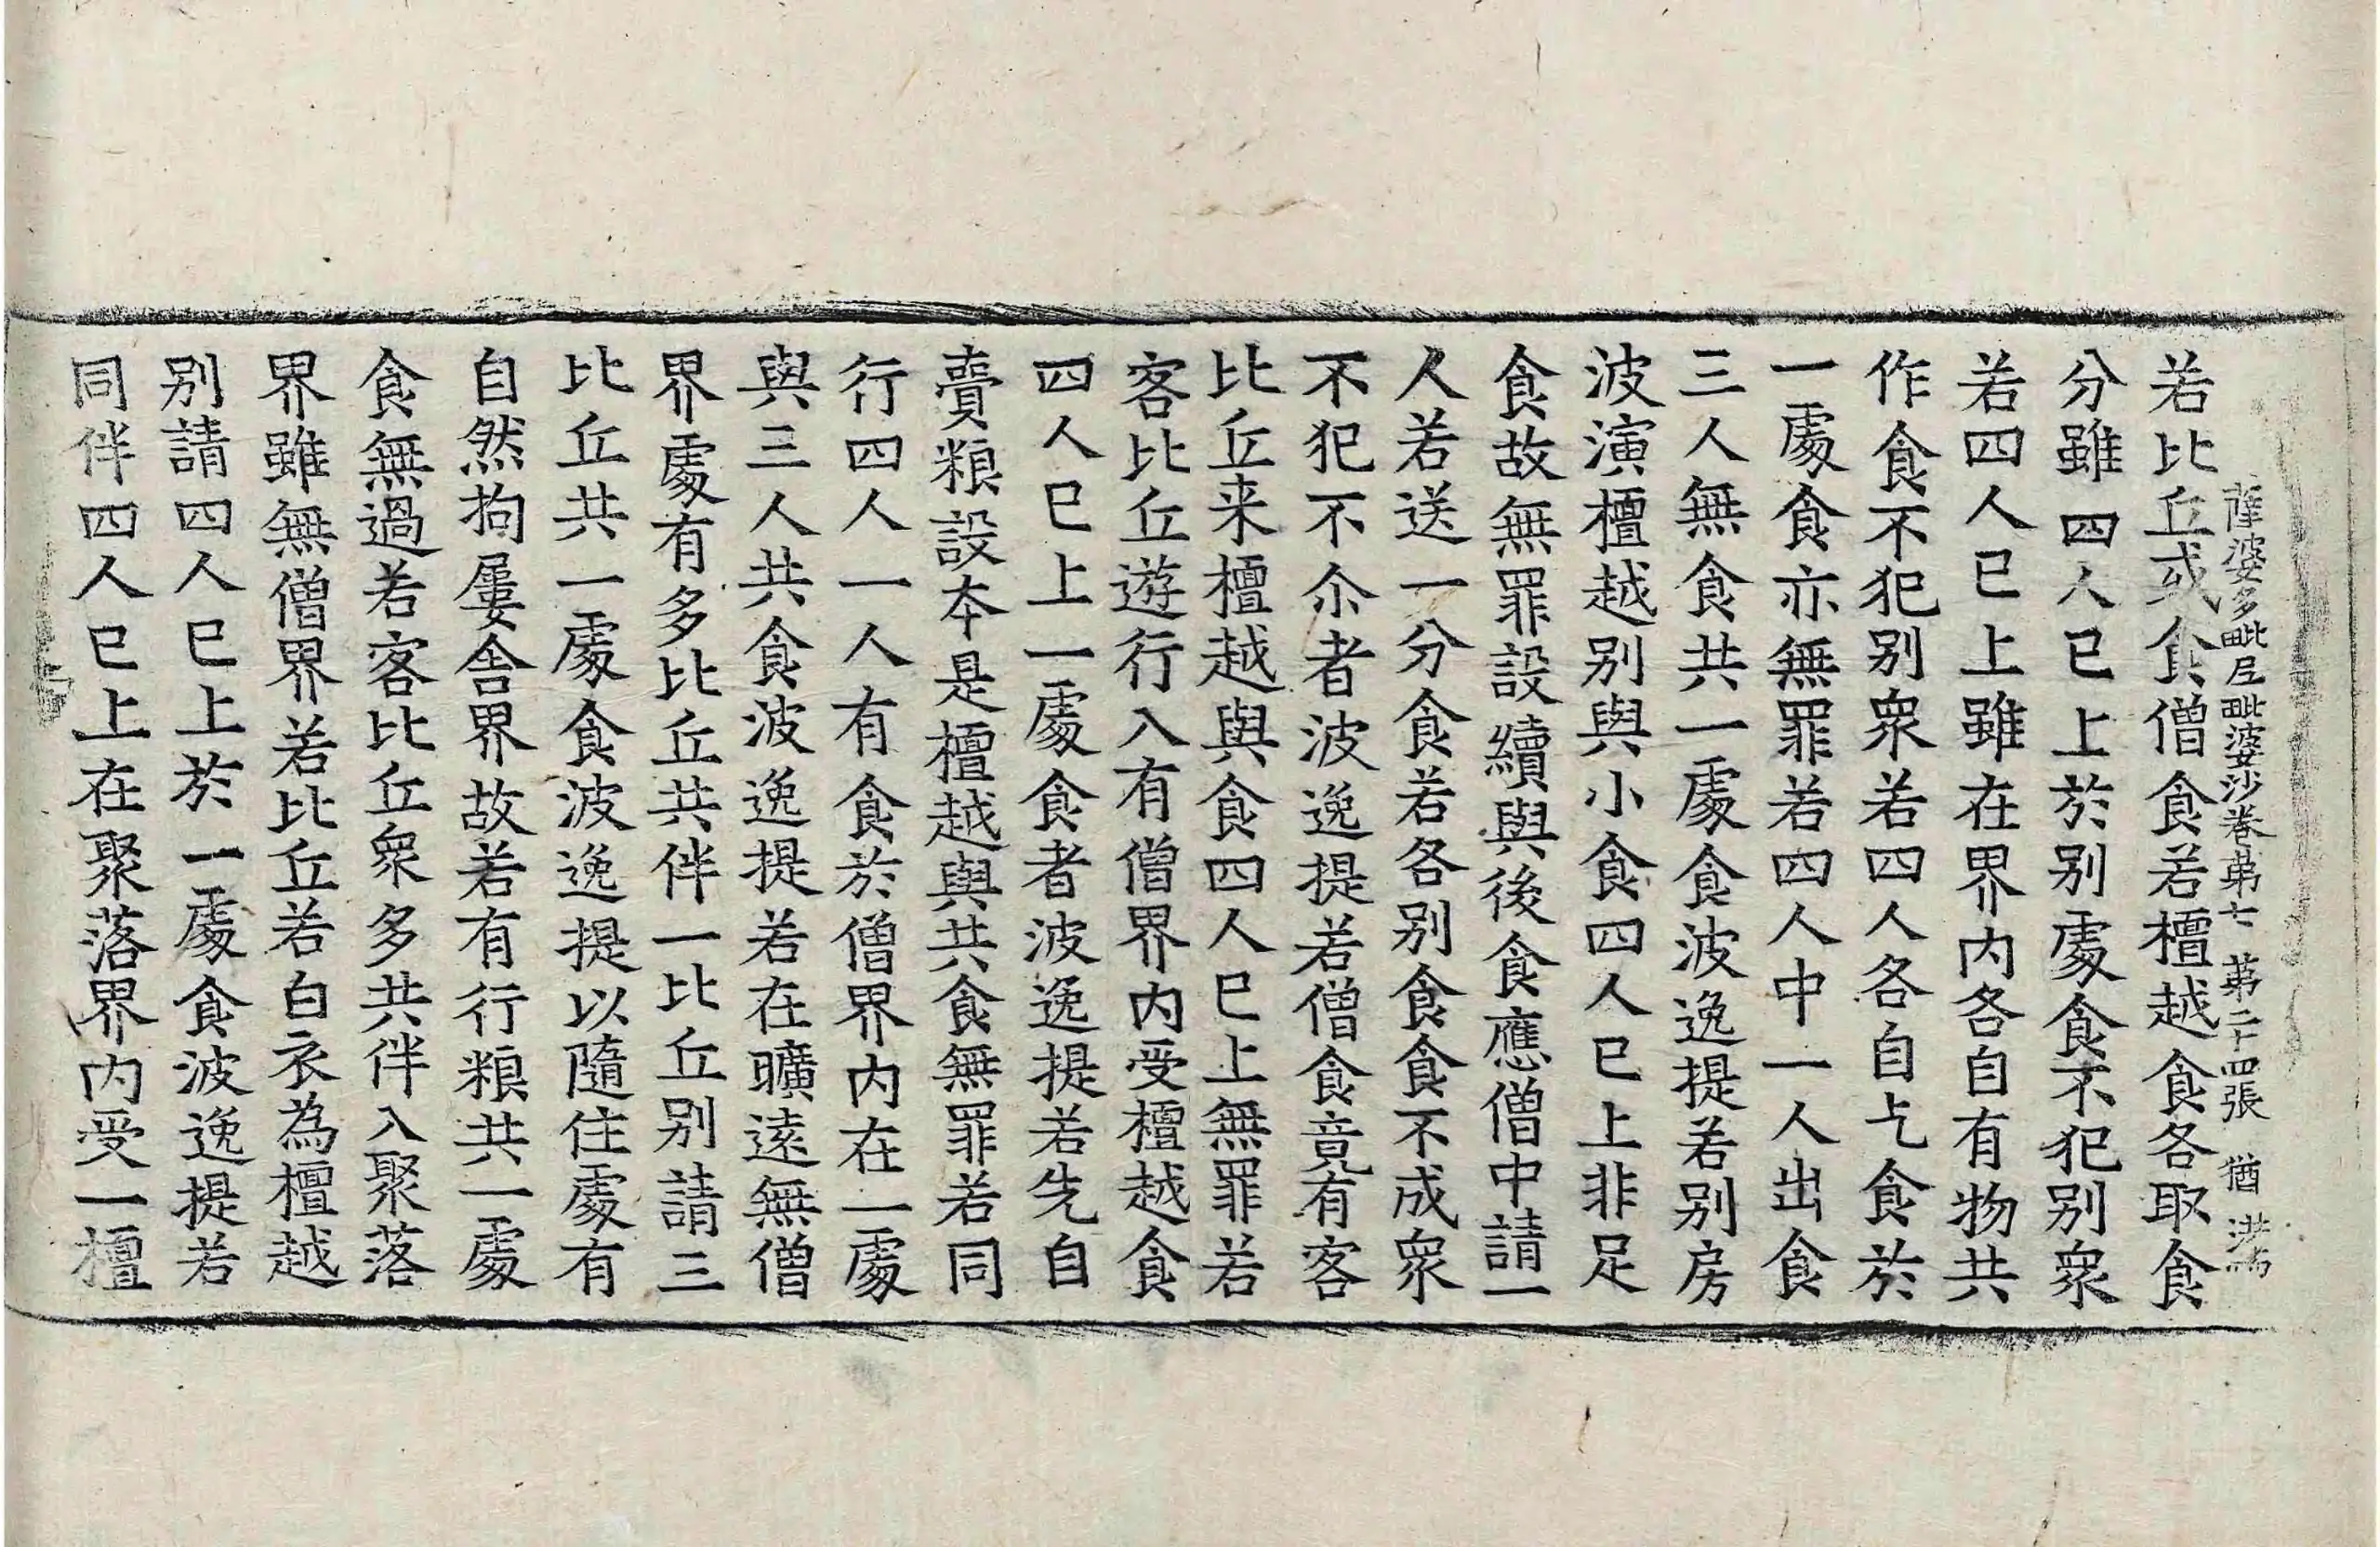 薩婆多毗尼毗婆沙卷第七 第二十四張 猶
若比丘或食僧食若檀越食各取食
分雖四人已上於別處食不犯別衆
若四人已上雖在界內各自有物共
作食不犯別衆若四人各自乞食於
一處食亦無罪若四人中一人出食
三人無食共一處食波逸提若別房
波演檀越別與小食四人已上非足
食故無罪設續與後食應僧中請一
人若送一分食若各別食食不成衆
不犯不尒者波逸提若僧食竟有客
比丘来檀越與食四人已上無罪若
客比丘遊行入有僧界內受檀越食
四人已上一處食者波逸提若先自
賷粮設本是檀越與共食無罪若同
行四人一人有食於僧界內在一處
與三人共食波逸提若在曠遠無僧
界處有多比丘共伴一比丘別請三
比丘共一處食波逸提以隨住處有
自然拘屢舍界故若有行粮共一處
食無過若客比丘衆多共伴入聚落
界雖無僧界若比丘若白衣為檀越
別請四人已上於一處食波逸提若
同伴四人已上在聚落界內受一檀